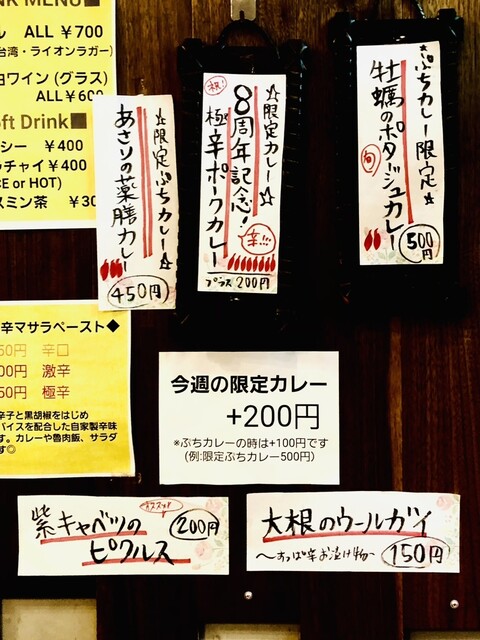 NK MENU■
ル ALL ¥700
台湾・ライオンラガー)
白ワイン(グラス)
ALL¥600
oft Drink■
シー ¥400
ッチャイ¥400
CE or HOT)
スミン茶 ¥30
☆限定ぷちカレー☆
あさりの薬膳カレー
450円
祝!
☆限定カレー☆
8周年記念!
極辛ポークカレー
辛!!!
プラス200円
☆ぷちカレー限定☆
牡蠣のポタージュカレー
旬
500円
辛マサラペースト◆
50円 辛口
00円 激辛
50円 極辛
辛子と黒胡椒をはじめ
パイスを配合した自家製辛味
す。カレーや魯肉飯、サラダ
す◎
今週の限定カレー
+200円
※ぷちカレーの時は+100円です
(例:限定ぷちカレー500円)
紫キャベツの
ピクルス
オススメ!
200円
大根のウールガイ
〜すっぱ辛お漬け物〜
150円